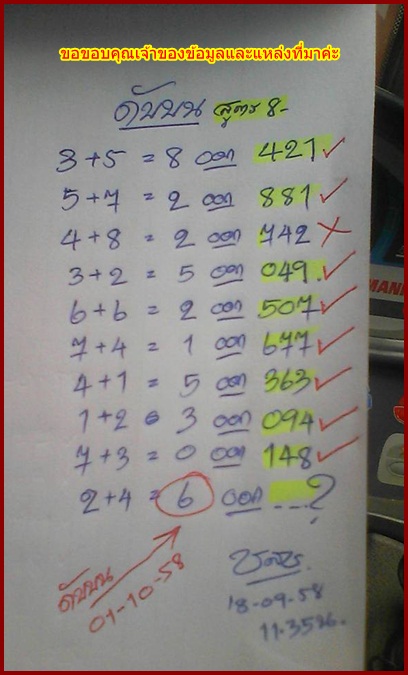 ขอขอบคุณเจ้าของข้อมูลและแหล่งที่มาค่ะ
ดับบน สูตร 8-
3+5 = 8 ออก 421 ✓
5+7 = 2 ออก 881 ✓
4+8 = 2 ออก 742 ✗
3+2 = 5 ออก 049 ✓
6+6 = 2 ออก 507 ✓
7+4 = 1 ออก 677 ✓
4+1 = 5 ออก 363 ✓
1+2 = 3 ออก 094 ✓
7+3 = 0 ออก 148 ✓
2+4 = 6 ออก ....?
ดับบน
01-10-58
18-09-58
MAN